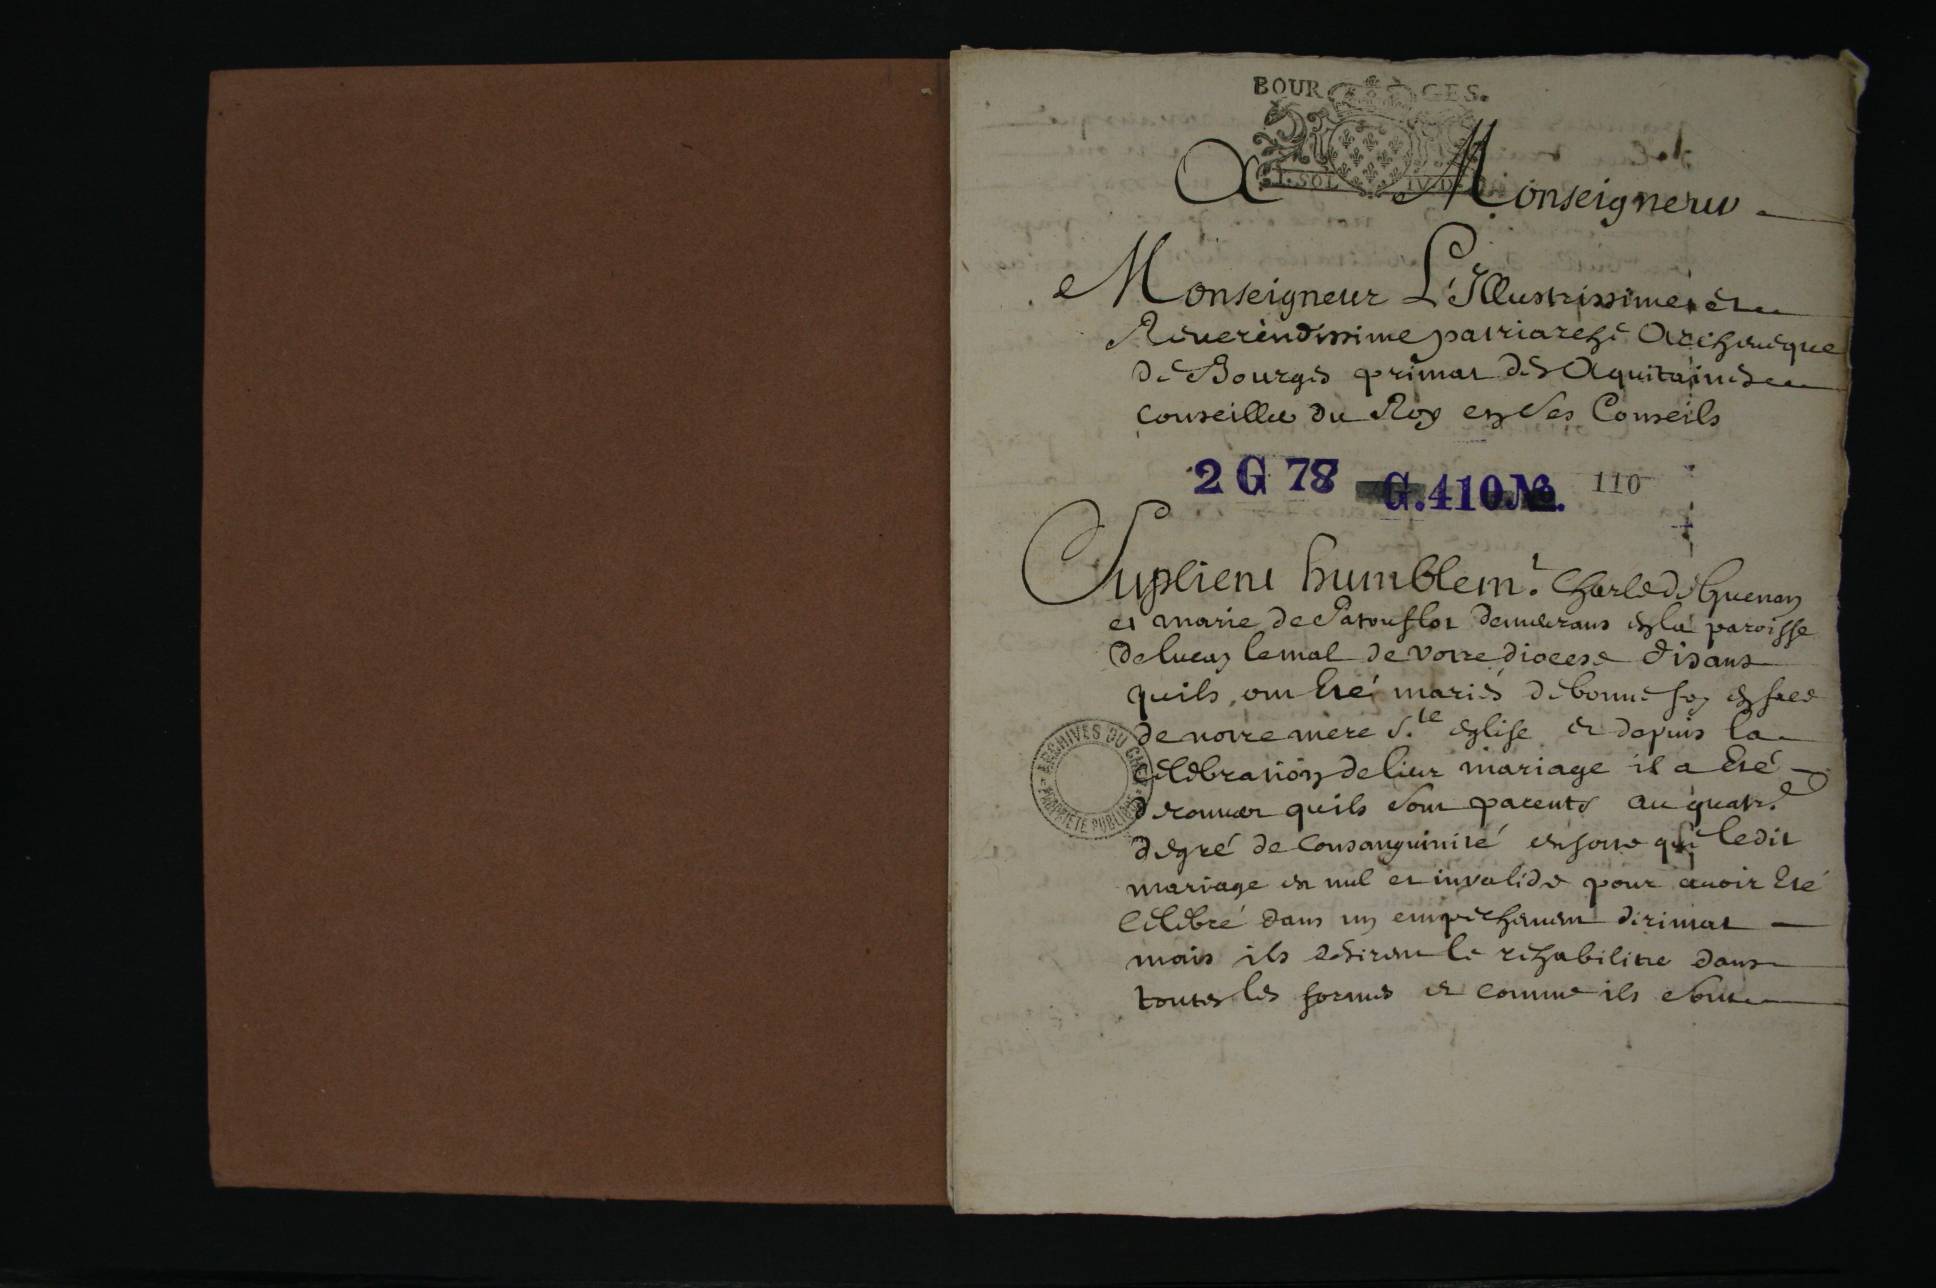 BOURGES.
I. SOL IV. D.
A Monseigneur
Monseigneur L'Illustrissime et
Reuerendissime patriarche Archeuêque
de Bourges primat des Aquitaines
conseiller du Roy en ses Conseils
2 G 78 G.410 No. 110
Suplient humblemt. Charle de Guenan
et marie de Patouflot demeurans en la paroisse
de lucay lemal de votre diocese disans
quils ont Eté mariés de bonne foy en face
de notre mere Ste. eglise et depuis la
célébration de leur mariage il a Eté
decouuer quils sont parents au quatre.
degré de Consanguinité en sorte que ledit
mariage est nul et invalide pour auoir Eté
Célébré dans un empechement dirimat
mais ils desirent le rehabiliter dans
toutes les formes et comme ils sont
ARCHIVES DU CHER
PROPRIETE PUBLIQUE